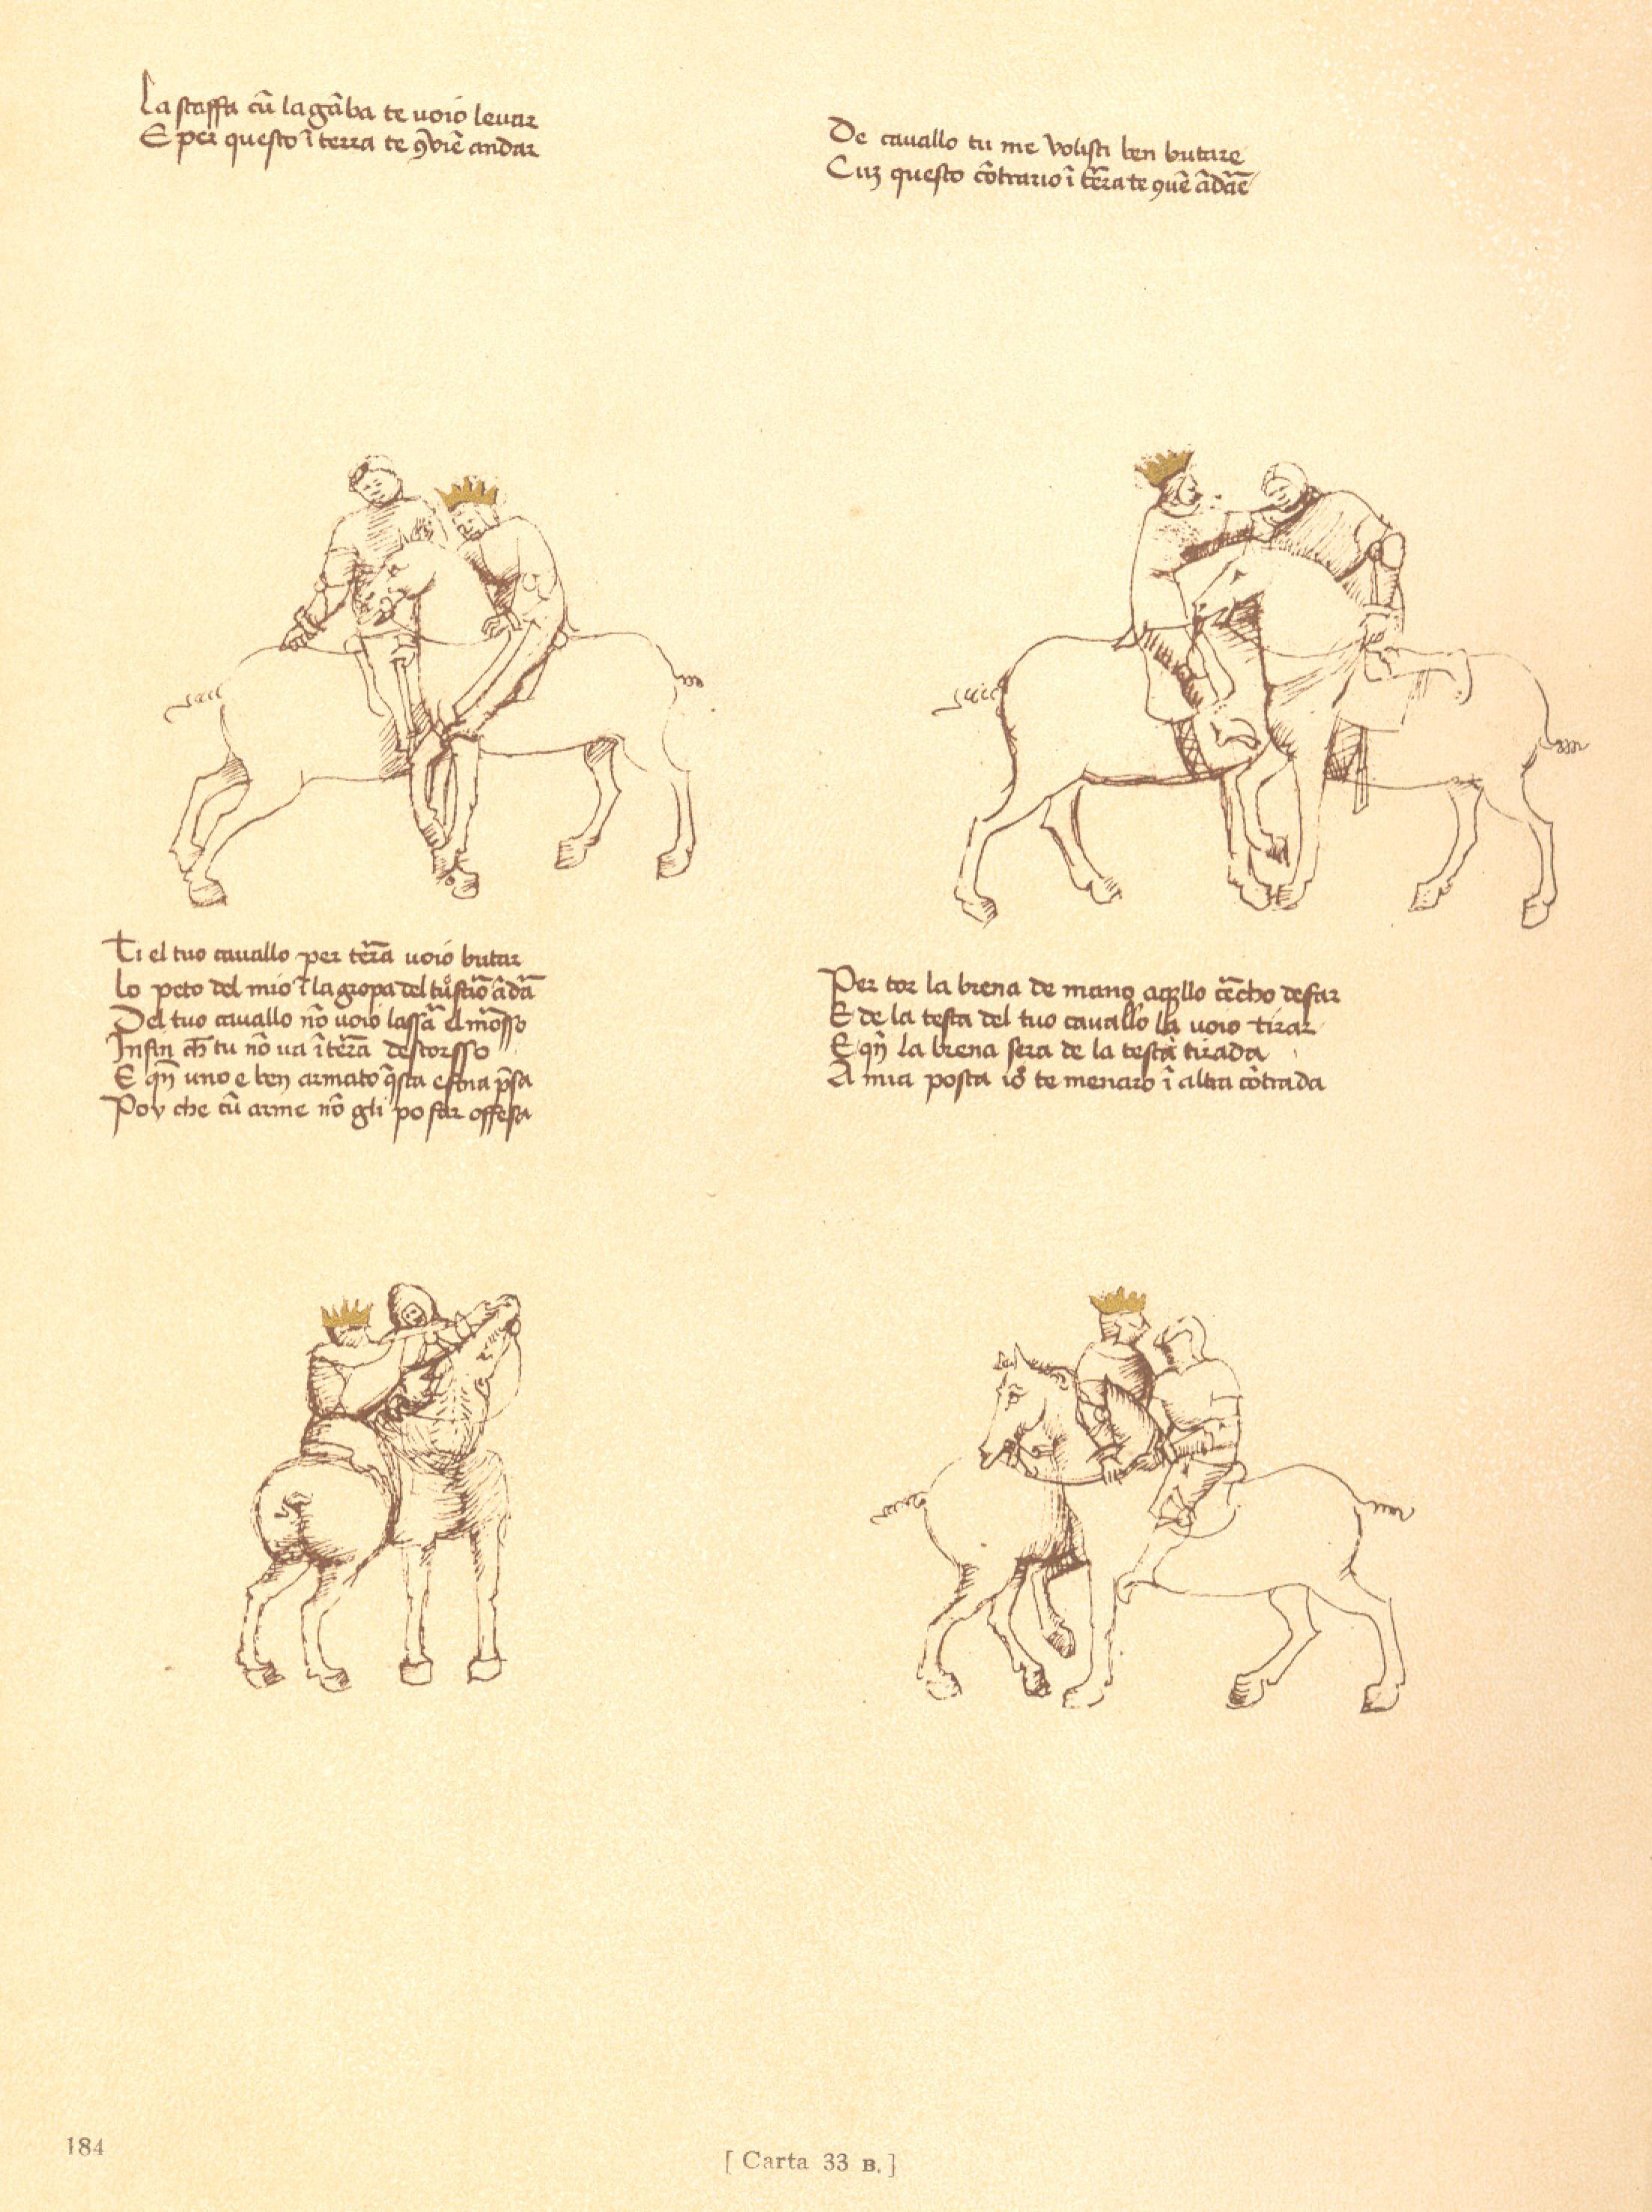 La staffa cũ la gãba te voio levar
E per questo ĩ terra te ꝯviẽ andar
De cavallo tu me volisti ben butare
Cuz questo cõtrario ĩ tẽra te ꝯvẽ ãdãe
Ti el tuo cavallo per tẽra voio butar
Lo peto del mio ĩ la gropa del tuo ãdã
Del tuo cavallo nõ voio lassã el mosso
Infin ch̃ tu nõ va ĩ tẽra destorsso
E qñ uno e ben armato q̃sta e fina p̃sa
Poy che cũ arme nõ gli po far offesa
Per tor la brena de mano aq̃llo cẽcho de far
E de la testa del tuo cavallo la voio tirar
E qñ la brena sera de la testa tirada
A mia posta io te menaro ĩ altra cõtrada
184
[ Carta 33 B. ]